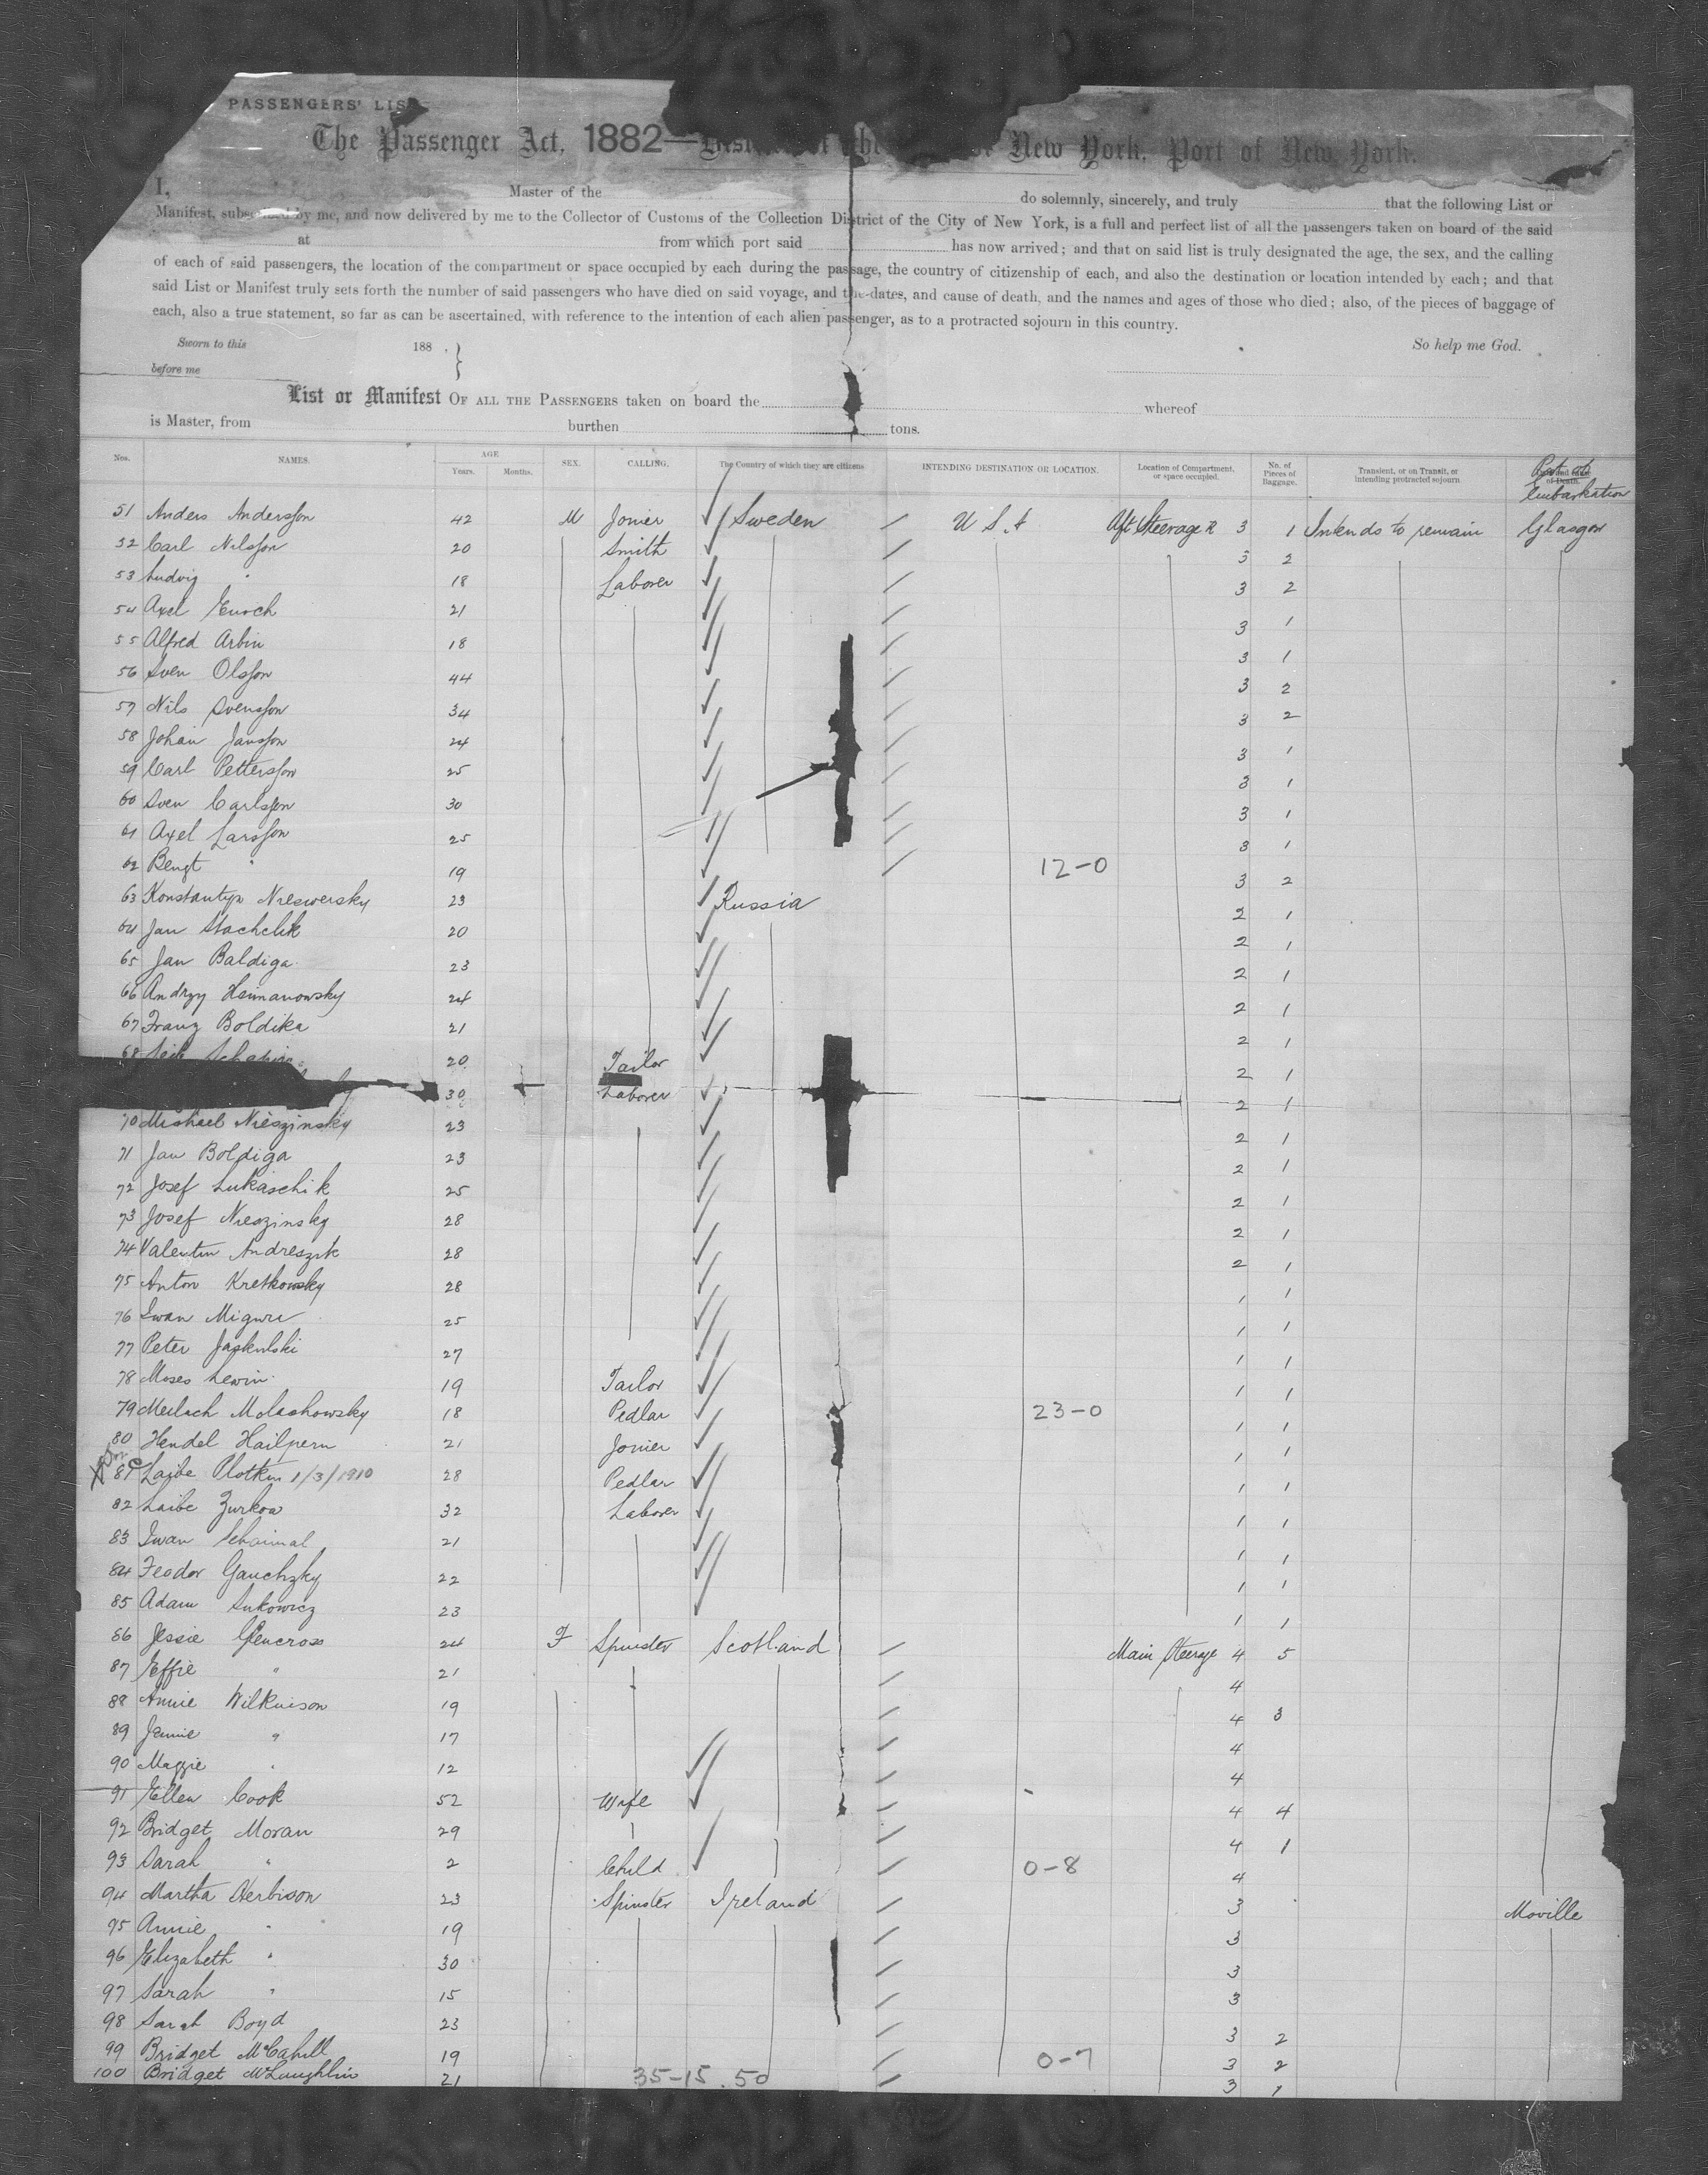 PASSENGERS' LIST
The Passenger Act, 1882— New York, Port of New York.
I, Master of the do solemnly, sincerely, and truly that the following List or
Manifest, subscribed by me, and now delivered by me to the Collector of Customs of the Collection District of the City of New York, is a full and perfect list of all the passengers taken on board of the said
at from which port said has now arrived; and that on said list is truly designated the age, the sex, and the calling
of each of said passengers, the location of the compartment or space occupied by each during the passage, the country of citizenship of each, and also the destination or location intended by each; and that
said List or Manifest truly sets forth the number of said passengers who have died on said voyage, and the dates, and cause of death, and the names and ages of those who died; also, of the pieces of baggage of
each, also a true statement, so far as can be ascertained, with reference to the intention of each alien passenger, as to a protracted sojourn in this country.
Sworn to this 188 . } So help me God.
before me
List or Manifest OF ALL THE PASSENGERS taken on board the whereof
is Master, from burthen tons.
Nos. NAMES. AGE Years. Months. SEX. CALLING. The Country of which they are citizens INTENDING DESTINATION OR LOCATION. Location of Compartment, or space occupied. No. of Pieces of Baggage. Transient, or on Transit, or intending protracted sojourn Port of Embarkation
51 Anders Andersson 42 M Joiner Sweden U S A Aft Steerage R 3 1 Intends to remain Glasgow
52 Carl Nilsson 20 Smith 3 2
53 Ludvig " 18 Laborer 3 2
54 Axel Enoch 21 3 1
55 Alfred Arbin 18 3 1
56 Sven Olsson 44 3 2
57 Nils Svensson 34 3 2
58 Johan Jansson 24 3 1
59 Carl Pettersson 25 3 1
60 Sven Carlsson 30 3 1
61 Axel Larsson 25 3 1
62 Bengt " 19 12-0 3 2
63 Konstantyn Nieswersky 23 Russia 2 1
64 Jan Stachelik 20 2 1
65 Jan Baldiga 23 2 1
66 Andrzy Heimanowsky 24 2 1
67 Franz Boldika 21 2 1
68 20 Tailor 2 1
30 Laborer 2 1
70 Michael Nieszinsky 23 2 1
71 Jan Boldiga 23 2 1
72 Josef Lukaschik 25 2 1
73 Josef Nieszinsky 28 2 1
74 Valentin Andreszik 28 2 1
75 Anton Kretkowsky 28 1 1
76 Iwan Migure 25 1 1
77 Peter Jaskulski 27 1 1
78 Moses Lewin 19 Tailor 1 1
79 Meilach Molashowsky 18 Pedlar 23-0 1 1
80 Hendel Hailpern 21 Joiner 1 1
81 Laibe Plotkin 1/3/1910 28 Pedlar 1 1
82 Laibe Zurkow 32 Laborer 1 1
83 Iwan Schaimal 21 1 1
84 Feodor Gauchzky 22 1 1
85 Adam Sukowicz 23 1 1
86 Jessie Glencross 24 F Spinster Scotland Main Steerage 4 5
87 Effie " 21 4
88 Annie Wilkinson 19 4 3
89 Jennie " 17 4
90 Maggie " 12 4
91 Ellen Cook 52 Wife 4 4
92 Bridget Moran 29 4 1
93 Sarah " 2 Child 0-8 4
94 Martha Herbison 23 Spinster Ireland 3 Moville
95 Annie " 19 3
96 Elizabeth " 30 3
97 Sarah " 15 3
98 Sarah Boyd 23 3 2
99 Bridget McCahill 19 0-7 3 2
100 Bridget McLaughlin 21 35-15. 50 3 1